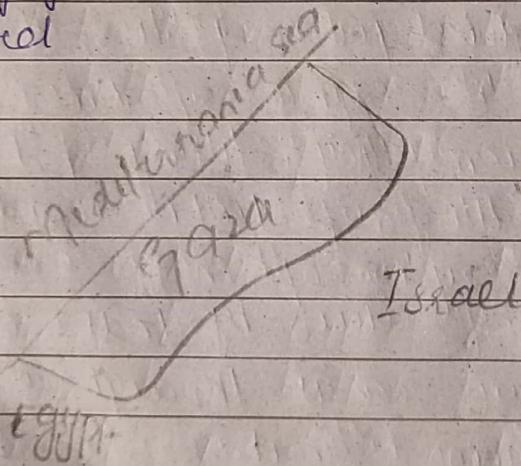 Mediterrania sea.
Gaza
Israel
egypt